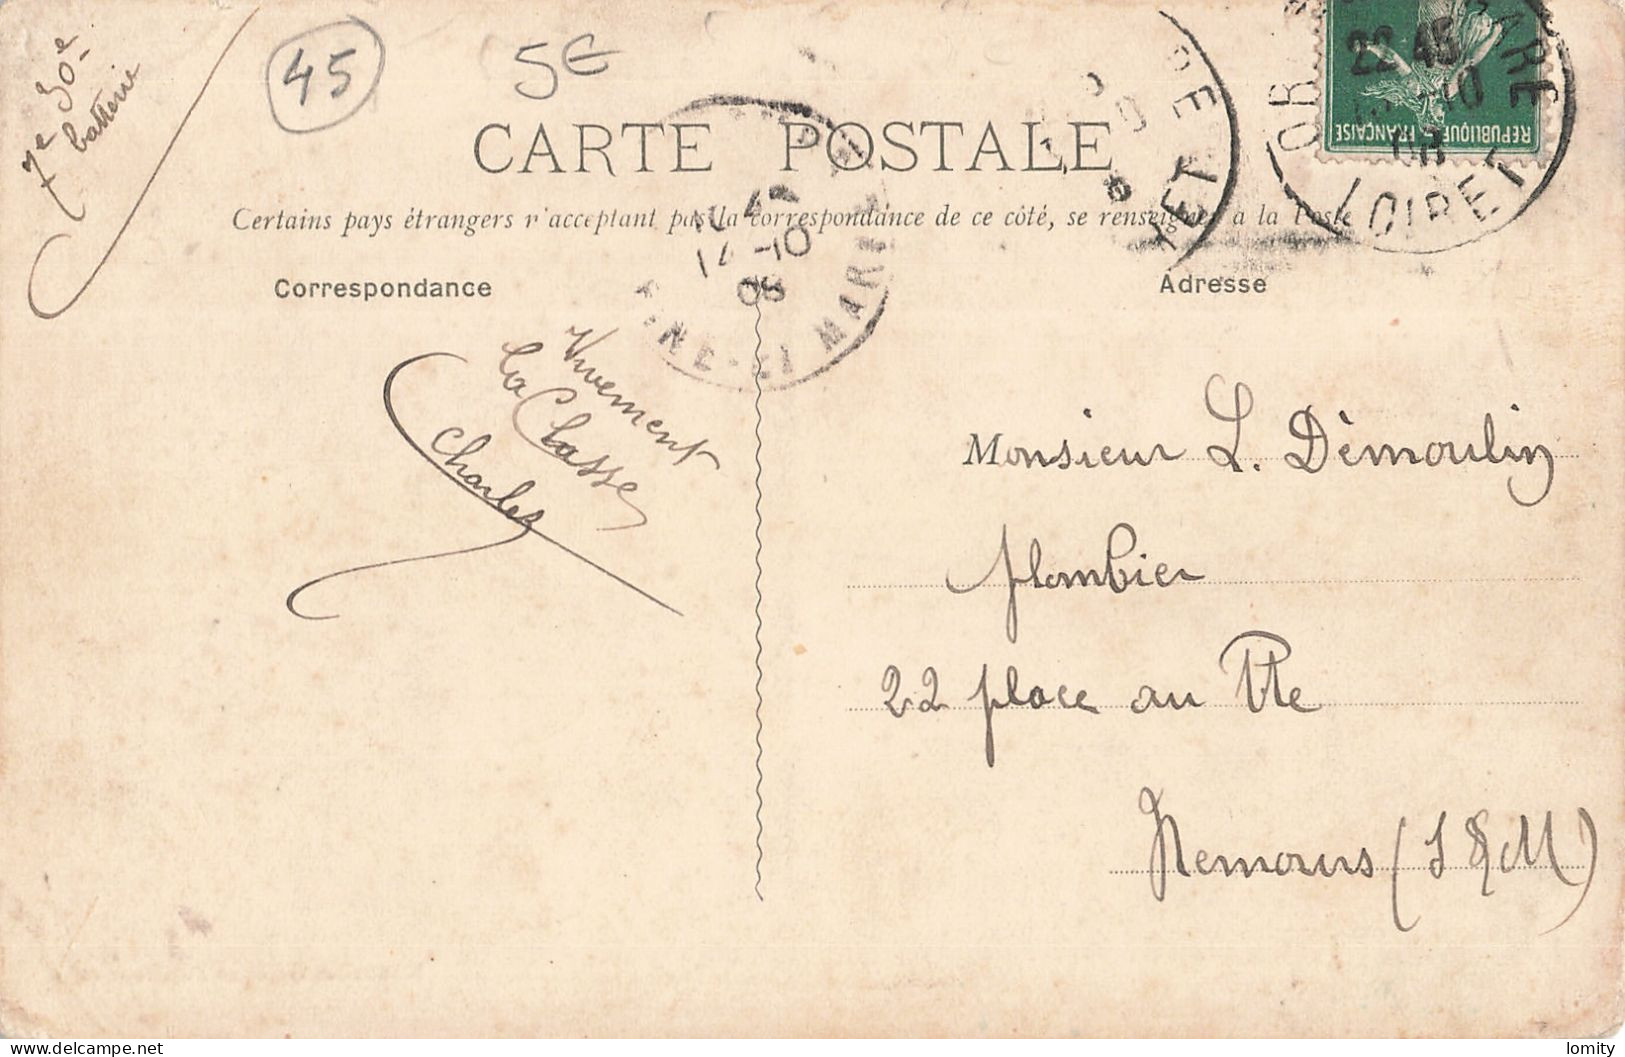 7e 30e
batterie
45
5€
CARTE POSTALE
Certains pays étrangers n'acceptant pas la correspondance de ce côté, se renseigner à la Poste
Correspondance
Adresse
22 45
-10
08
GARE
LOIRET
REPUBLIQUE FRANÇAISE
RE
IET
17 -10
08
ET MARNE
Vivement
la Classe
Charles
Monsieur L. Démoulin
plombier
22 place au Ble
Nemours (S & M)
lomity